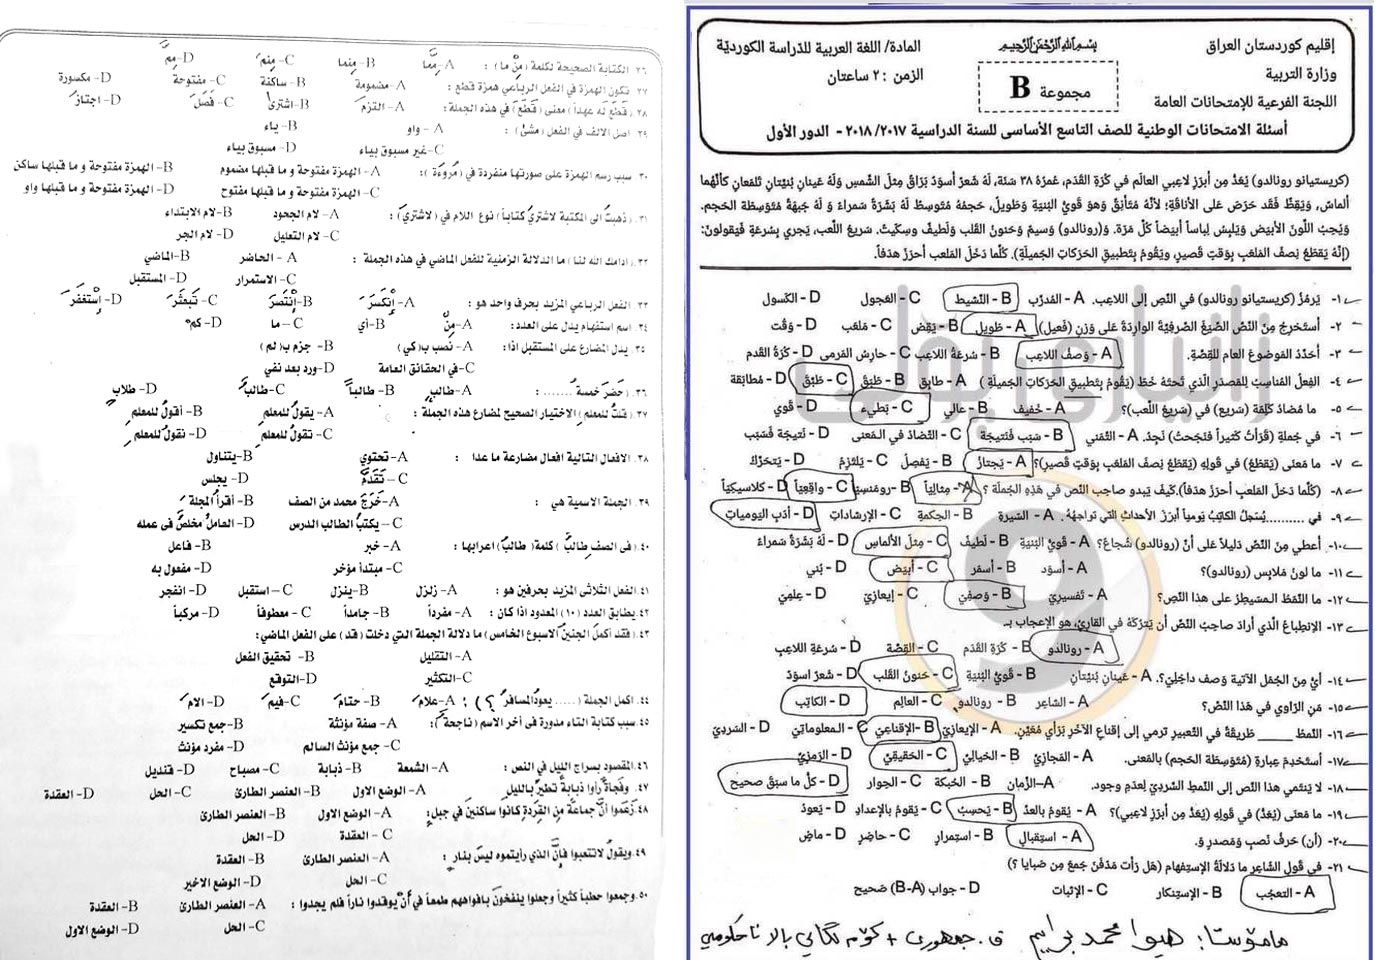 إقليم كوردستان العراق
وزارة التربية
اللجنة الفرعية للإمتحانات العامة
بسم الله الرحمن الرحيم
مجموعة B
المادة/ اللغة العربية للدّراسة الكورديّة
الزمن : ٢ ساعتان
أسئلة الامتحانات الوطنية للصف التاسع الأساسى للسنة الدراسية ٢٠١٧/ ٢٠١٨ - الدور الأول
(كريستيانو رونالدو) يُعَدُّ مِن أبرَزِ لاعِبي العالَم في كُرَةِ القَدَم، عُمرُهُ ٣٨ سَنَة، لَهُ شَعرٌ أسوَدُ بَرّاقٌ مِثلَ الشَّمسِ وَلَهُ عَينانِ بُنيَّتانِ تَلمَعانِ كأنَّهُما
ألماسٌ، وَيَقِظٌ فَقَد حَرَصَ على الأناقَةِ؛ لأنَّهُ مُتَأنِقٌ وَهوَ قَويُّ البُنيَةِ وَطَويلٌ، حَجمُهُ مُتَوسِطٌ لَهُ بَشَرَةٌ سَمراءُ وَ لَهُ جَبهَةٌ مُتَوَسِّطة الحَجم.
وَيُحِبُّ اللَّونَ الأبيَضَ وَيَلبِسُ لِباساً أبيَضاً كُلَّ مَرّة. وَ(رونالدو) وَسيمٌ وَحَنونُ القَلب وَلَطيفٌ وسِكّيتٌ. سَريعُ اللّعب، يَجري بِسُرعَةٍ فَيَقولونَ:
(إنَّهُ يَقطَعُ نِصفَ المَلعَبِ بِوَقتٍ قَصيرٍ، ويَقُومُ بِتَطبيقِ الحَرَكاتِ الجَميلَةِ). كُلَّما دَخَلَ المَلعب أحرَزَ هدَفاً.
١- يَرمُزُ (كريستيانو رونالدو) في النّصِ إلى اللاعِبِ. A - المُدرّب B - النّشيط C - العَجول D - الكَسول
٢- أستَخرِجُ مِنَ النّصّ الصّيَغَ الصّرفيَّةَ الوارِدَةَ عَلى وَزنِ (فَعيل) A - طَويل B - يَقِض C - مَلعَب D - وَقت
٣- أحَدّدُ المَوضوعَ العام للقِصّةِ. A - وَصفُ اللاعِب B - سُرعَةُ اللاعِب C - حارِسُ المَرمى D - كُرَةُ القَدم
٤- الفِعلُ المُناسِبُ لِلمَصدَرِ الّذي تَحتَهُ خَطّ (يَقُومُ بِتَطبيقِ الحَرَكاتِ الجَميلَةِ) A - طابِق B - طَبَقَ C - طَبَّقَ D - مُطابَقة
٥- ما مُضادُّ كَلِمَةِ (سَريع) في (سَريعُ اللّعب)؟ A - خَفيف B - عالي C - بَطيء D - قَوي
٦- في جُملَةِ (قَرَأتُ كَثيراً فَنَجَحتُ) نَجِدُ. A - التّمَني B - سَبَب فَنَتيجَة C - التّضادّ في المَعنى D - نَتيجَة فَسَبَب
٧- ما مَعنَى (يَقطَعُ) في قَولِهِ (يَقطَعُ نِصفَ المَلعَبِ بِوَقتٍ قَصيرٍ)؟ A - يَجتازُ B - يَفصِلُ C - يَلتَزِمُ D - يَتَحَرّكُ
٨- (كُلّما دَخَلَ المَلعب أحرَزَ هدَفاً). كَيفَ يَبدو صاحِب النّص في هَذِهِ الجُملَة ؟ A - مِثالِيّاً B - رومَنسِيّاً C - واقِعِيّاً D - كلاسيكِيّاً
٩- في .......... يُسَجِّلُ الكاتِبُ يَومياً أبرَزَ الأحداثِ التي تواجِهُهُ. A - السّيرة B - الحِكمَةِ C - الإرشاداتِ D - أدَبِ اليَومياتِ
١٠- أعطي مِنَ النّصّ دَليلاً عَلى أنّ (رونالدو) شُجاع؟ A - قَويُّ البُنيَةِ B - لَطيفٌ C - مِثلَ الألماس D - لَهُ بَشَرَةٌ سَمراءُ
١١- ما لونُ مَلابِسِ (رونالدو)؟ A - أسوَد B - أسمَر C - أبيَض D - بُني
١٢- ما النّمَطُ المُسَيطِرُ على هذا النّصّ؟ A - تَفسيريّ B - وَصفِيّ C - إيعازيّ D - عِلمِيّ
١٣- الإنطِباعُ الّذي أرادَ صاحِبُ النّصّ أن يَترُكَهُ في القارِئ، هو الإعجاب بـ.
A - رونالدو B - كُرَةِ القَدَم C - القِصّة D - سُرعَةِ اللاعِب
١٤- أيٌّ مِنَ الجُمَلِ الآتية وَصف داخِلِيّ؟. A - عَينانِ بُنيَّتانِ B - قَويُّ البُنيَة C - حَنونُ القَلب D - شَعرٌ اسوَدٌ
١٥- مَن الرّاوي في هَذا النّصّ؟ A - الشاعِر B - رونالدو C - العالِم D - الكاتِب
١٦- النّمطُ ______ طَريقَةٌ في التّعبيرِ تَرمي إلى إقناعِ الآخَرِ بِرَأيٍ مُعَيّن. A - الإيعازِيّ B - الإقناعِيّ C - المعلوماتيّ D - السّردِيّ
١٧- أستَخدِمُ عِبارةَ (مُتَوَسّطَة الحَجم) بالمَعنى. A - المَجازِيّ B - الخيالِيّ C - الحَقيقِيّ D - الرّمزِيّ
١٨- لا يَنتَمي هذا النّص إلى النّمَطِ السّردِيّ لِعدَمِ وجود. A - الزّمان B - الحَبكة C - الحِوار D - كلُّ ما سبَقَ صحيح
١٩- ما مَعنَى (يُعَدُّ) في قَولِهِ (يُعَدُّ مِن أبرَزِ لاعِبي)؟ A - يَقومُ بالعدّ B - يَحسِبُ C - يَقومُ بالإعدادِ D - يَعودُ
٢٠- (أن) حَرفُ نَصبٍ وَمَصدَرٍ وَ. A - استِقبالٍ B - استِمرار C - حاضِر D - ماضٍ
٢١- في قَولِ الشّاعِرِ ما دَلالَةُ الإستِفهام (هَل رَأت مَدفَنَ جَمع مِن ضَبايا ؟)
A - التعجُب B - الإستِنكار C - الإثبات D - جواب (B-A) صَحيح
مامۆستا: هیوا محمد براهیم ق. جمهوری + كۆمەڵگای باڵا ناحكومي
زانیاری پۆلی
9
٢٦. الكتابة الصحيحة لكلمة (مِنْ ما) : A- مِمّا B- مِنما C- مِنمَ D- مِمَّ
٢٧. تكون الهمزة في الفعل الرباعي همزة قطع : A- مضمومة B- ساكنة C- مفتوحة D- مكسورة
٢٨. (قَطَعَ لَهُ عهداً) معنى (قَطَعَ) في هذه الجملة: A- التزمَ B- اشترىٰ C- فَصَلَ D- اجتازَ
٢٩. اصل الالف في الفعل (مَشىٰ) : A - واو B- ياء
C- غير مسبوق بياء D- مسبوق بياء
٣٠. سبب رسم الهمزة على صورتها منفردة في (مُروءَة ): A- الهمزة مفتوحة و ما قبلها مضموم B- الهمزة مفتوحة و ما قبلها ساكن
C- الهمزة مفتوحة و ما قبلها مفتوح D- الهمزة مفتوحة و ما قبلها واو
٣١. (ذهبتُ الى المكتبة لاشتريَ كتاباً) نوع اللام في (لاشتريَ): A- لام الجحود B- لام الابتداء
C- لام التعليل D- لام الجر
٣٢. (ادامك الله لنا) ما الدلالة الزمنية للفعل الماضي في هذه الجملة : A - الحاضر B- الماضي
C- الاستمرار D- المستقبل
٣٣. الفعل الرباعي المزيد بحرف واحد هو : A- إنْكَسَرَ B- إنْتَصَرَ C- تَبعثَرَ D- إسْتَغفَرَ
٣٤. اسم استفهام يدل على العدد: A- مِنْ B- أي C - ما D- كم
٣٥. يدل المضارع على المستقبل اذا: A- نصب ب(كي) B- جزم ب( لم)
C- في الحقائق العامة D- ورد بعد نفي
٣٦. (حَضَرَ خمسةُ ........ : A- طالبٍ B- طالباً C- طالبٌ D- طلابٍ
٣٧. (قلتُ للمعلم) الاختيار الصحيح لمضارع هذه الجملة: A- يقولُ للمعلمِ B- أقولُ للمعلمِ
C- تقولُ للمعلمِ D- نقولُ للمعلمِ
٣٨. الافعال التالية افعال مضارعة ما عدا : A- تحتوي B- يتناول
C- تَقَدَّمَ D- يجلس
٣٩. الجملة الاسمية هي : A- خَرَجَ محمد من الصف B- أقرأُ المجلةَ
C - يكتبُ الطالب الدرس D- العاملُ مخلصٌ فى عمله
٤٠. (فى الصف طالبٌ) كلمة (طالبٌ) اعرابها: A- خبر B- فاعل
C- مبتدأ مؤخر D- مفعول به
٤١. الفعل الثلاثى المزيد بحرفين هو : A - زلزل B- ينزل C - استقبل D- انفجر
٤٢. يطابق العدد (١٠) المعدود اذا كان : A- مفرداً B- جامداً C- معطوفاً D- مركباً
٤٣. (فقد أكملَ الجنينُ الاسبوعَ الخامس) ما دلالة الجملة التي دخلت (قد) على الفعل الماضي:
A- التقليل B- تحقيق الفعل
C- التكثير D- التوقع
٤٤. اكمل الجملة (..... يعودُ المسافرُ ؟) : A- علامَ B- حتامَ C- فيمَ D- الامَ
٤٥. سبب كتابة التاء مدورة فى آخر الاسم (ناجحة): A- صفة مؤنثة B- جمع تكسير
C- جمع مؤنث السالم D- مفرد مؤنث
٤٦. المقصود بسراج الليل في النص : A- الشمعة B- ذبابة C- مصباح D- قنديل
٤٧. وفجأة رأوا ذبابةً تطيرُ بالليل A- الوضع الاول B- العنصر الطارئ C- الحل D- العقدة
٤٨. زعموا أنّ جماعةً من القردة كانوا ساكنينَ في جبلٍ: A- الوضع الاول B- العنصر الطارئ
C- العقدة D- الحل
٤٩. ويقولُ لاتتعبوا فإنَّ الذي رأيتموه ليسَ بنار : A- العنصر الطارئ B- العقدة
C- الحل D- الوضع الاخير
٥٠. وجمعوا حطباً كثيراً وجعلوا ينفخونَ بافواههم طمعاً في أنْ يوقدوا ناراً فلم يجدوا : A- العنصر الطارئ B- العقدة
C- الحل D- الوضع الاول